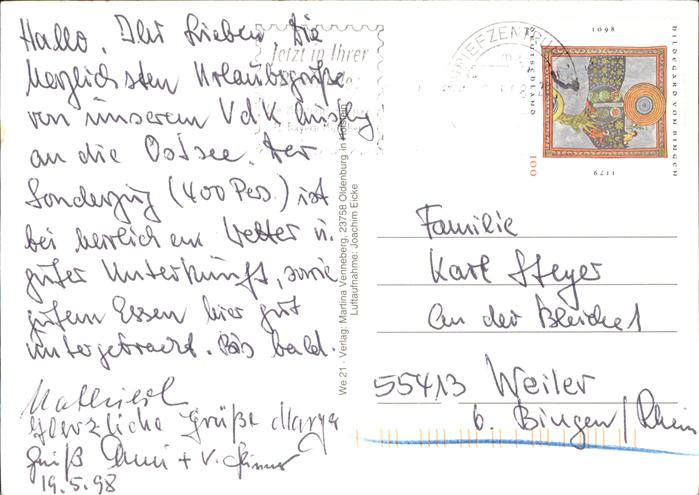 Hallo, Ihr Lieben die
herzlichsten Urlaubsgrüße
von unserem VdK Ausflug
an die Ostsee. Der
Sonderzug (400 Pers.) ist
bei herrlichem Wetter u.
guter Unterkunft, sowie
gutem Essen hier gut
untergebracht. Bis bald.
Herzliche Grüße Marga
Gruß
19.5.98
Jetzt in Ihrer
We 21 - Verlag: Martina Venneberg, 23758 Oldenburg in Holstein
Luftaufnahme: Joachim Eicke
BRIEFZENTRUM
1098
HILDEGARD VON BINGEN
DEUTSCHLAND
100
1179
Familie
Karl Steyer
An der Bleiche 1
55413 Weiler
b. Bingen/Rhein